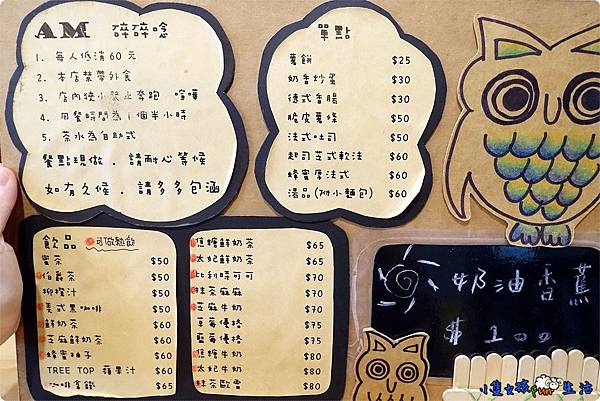 AM 碎碎唸
1. 每人低消60元
2. 本店禁帶外食
3. 店內狹小禁止奔跑 喧嘩
4. 用餐時間為1個半小時
5. 茶水為自助式
餐點現做．請耐心等候
如有久候．請多多包涵
單點
薯餅 $25
奶香炒蛋 $30
德式香腸 $30
脆皮薯條 $50
法式吐司 $50
起司芝式軟法 $60
蜂蜜厚法式 $60
湯品(附小麵包) $60
飲品 可做熱飲
蜜茶 $50
伯爵茶 $50
柳橙汁 $50
美式黑咖啡 $50
鮮奶茶 $60
芝麻鮮奶茶 $60
蜂蜜柚子 $60
TREE TOP 蘋果汁 $60
咖啡拿鐵 $65
焦糖鮮奶茶 $65
太妃鮮奶茶 $65
比利時可可 $70
抹茶麻麻 $70
芝麻牛奶 $70
草莓優格 $75
藍莓優格 $75
焦糖牛奶 $80
太妃牛奶 $80
抹茶歐蕾 $80
奶油香蕉
$100
小隻女孩fun生活